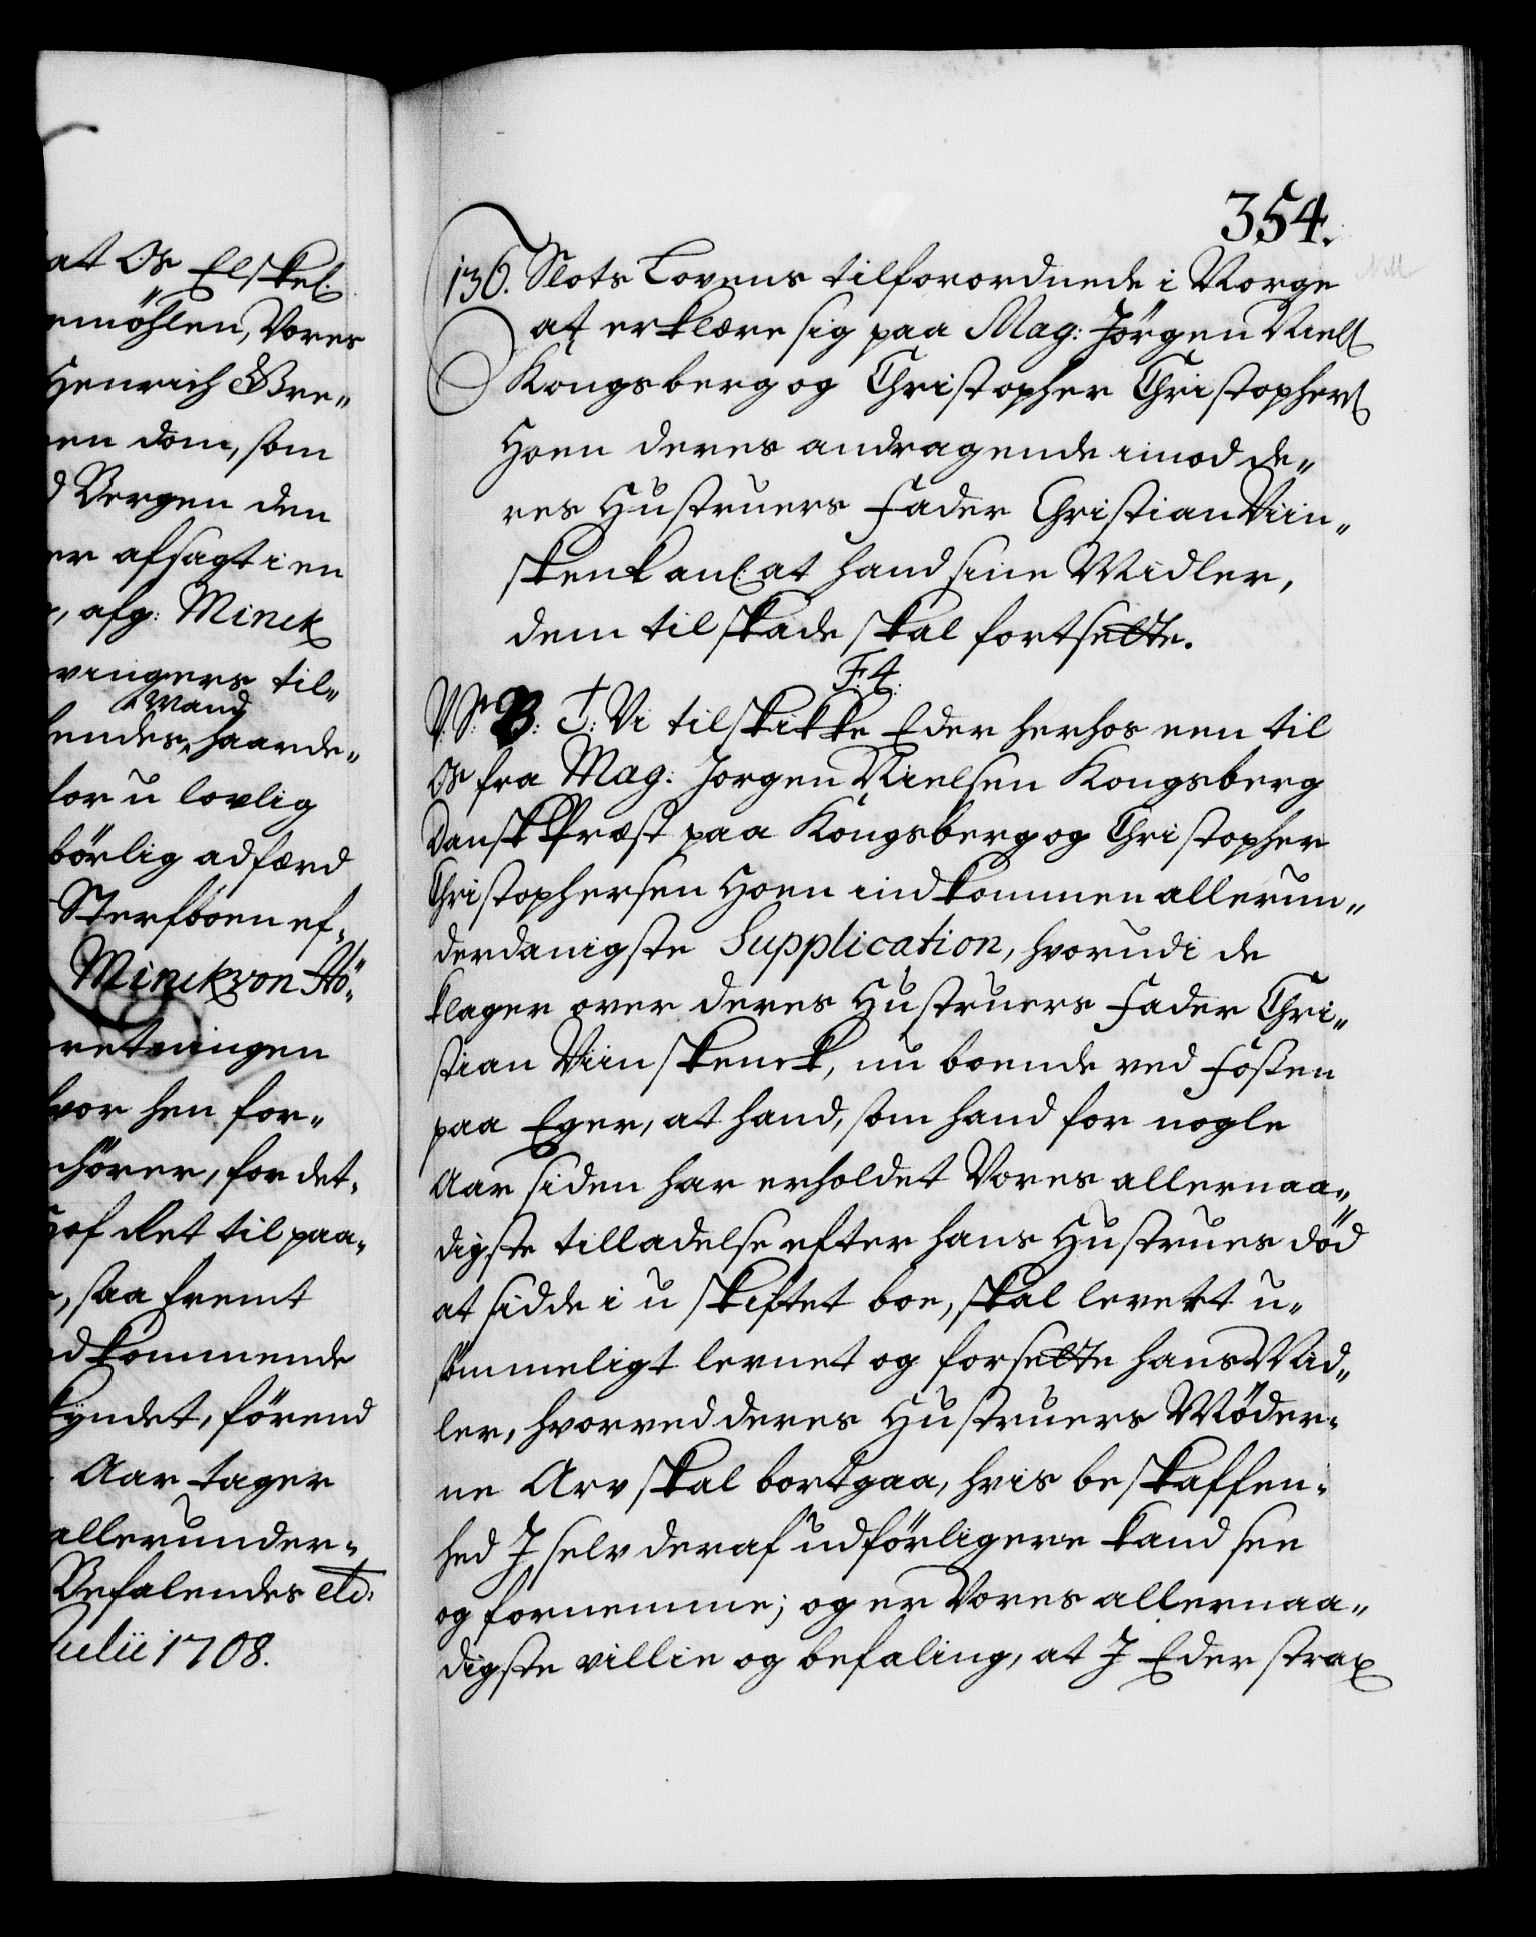 at Os Elskel.
emöhlen, Vores
Henrich Bre„
en dom, som
d Bergen den
er afsagt i en
, afg: Minck
vingers til„
Mand
hendes haarde„
for u lovlig
börlig adfærd
Sterfboen ef„
Minck von Hö„
retningen
hvor hen for„
hörer, for det„
Hof Ret til paa„
, saa fremt
d kommende
kyndet, förend
Aar tager
allerunder„
Befalendes etc:
Julii 1708.
354.
136. Slots Lovens tilforordnede i Norge
at erklære sig paa Mag: Jörgen Niels
Kongsberg og Christopher Christophers
Hoen deres andragende imod de„
res Hustruers Fader Christian Viin„
skenk anl: at hand sine Midler,
dem til skade skal fortsette.
F: 4.
V. S. B: T: Vi tilskikke Eder herhos een til
Os fra Mag: Jorgen Nielsen Kongsberg
Dansk Præst paa Kongsberg og Christopher
Christophersen Hoen indkommen allerun„
derdanigste Supplication, hvorudi de
klager over deres Hustruers Fader Chri„
stian Viinskenck, nu boende ved Fossen
paa Eger, at hand, som hand for nogle
Aar siden har erholdet Vores allernaa„
digste tilladelse efter hans Hustrues död
at sidde i u skiftet boe, skal levet u„
sömmeligt levnet og forsette hans Mid„
ler, hvorved deres Hustruers Möder„
ne Arv skal bortgaa, hvis beskaffen„
hed J selv deraf udförligere kand see
og fornemme; og er Vores allernaa„
digste villie og befaling, at J Eder strax